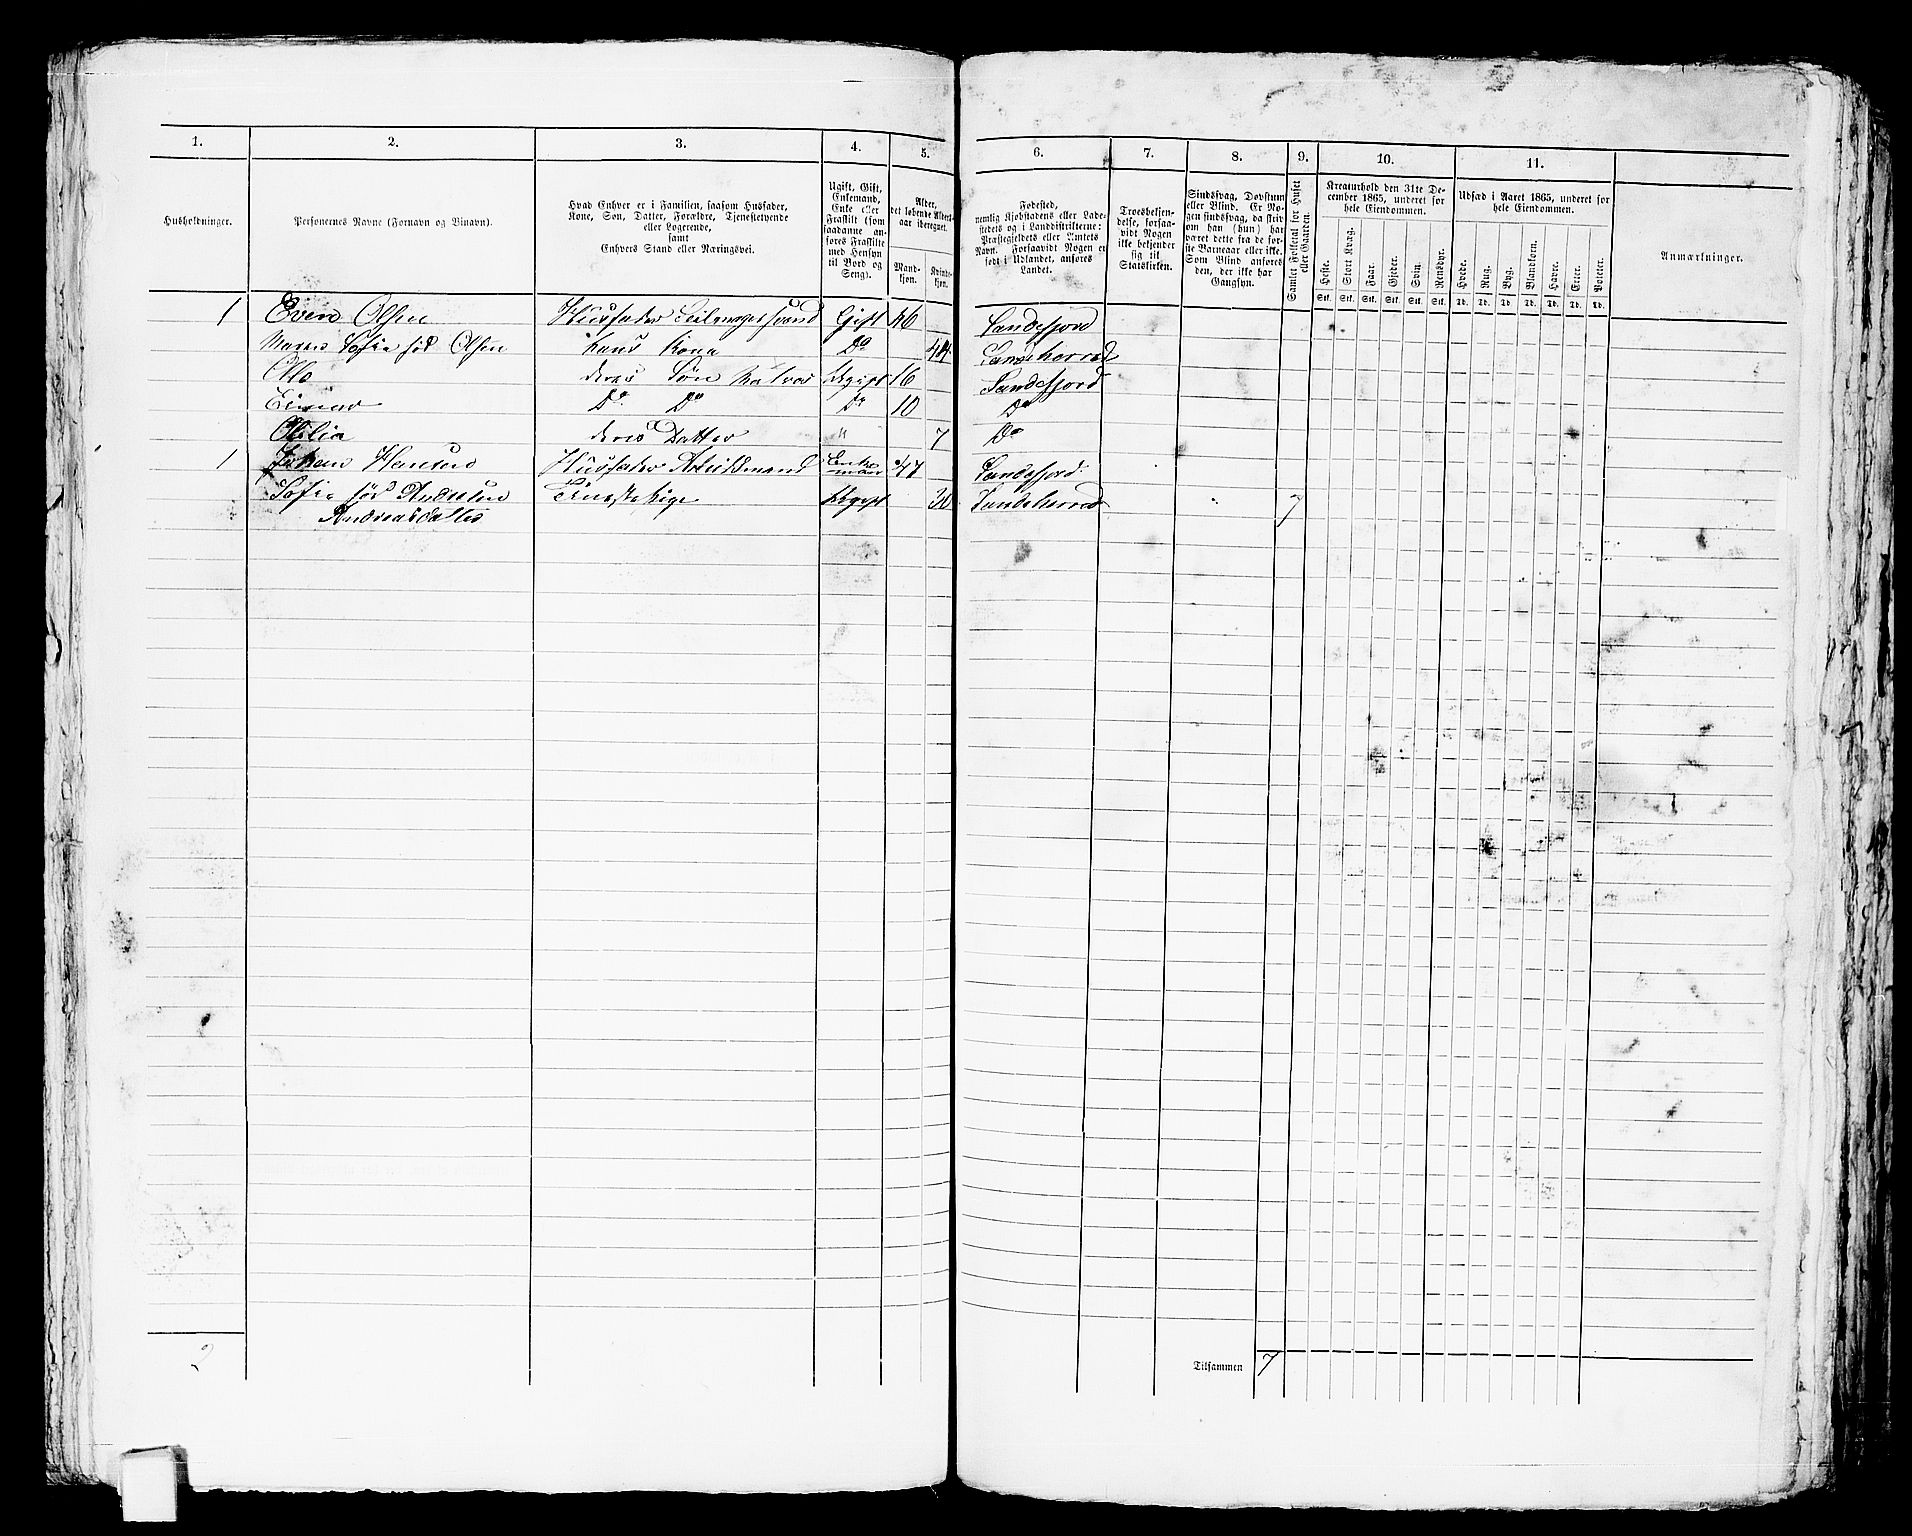 1.
2.
3.
4.
5.
Husholdninger.
Personernes Navne (Fornavn og Binavn).
Hvad Enhver er i Familien, saasom Husfader,
Kone, Søn, Datter, Forældre, Tjenestetyende
eller Logerende,
samt
Enhvers Stand eller Næringsvei.
Ugift, Gift,
Enkemand,
Enke eller
Fraskilt (som
saadanne an-
føres Fraskilte
med Hensyn
til Bord og
Seng).
Alder,
det løbende Alders-
aar iberegnet.
Mand-
kjøn.
Kvinde-
kjøn.
1 Even Olsen Husfader Seilmagersvend Gift 46
Maren Sofie fød Olsen hans Kone Do 44
Ole deres Søn Ugift 16
Einar Do Do Do 10
deres Datter " 7
1 Johan Hansen Husfader Arbeidsmand Enke-
mand 47
Sofie fød Andersen Tjenestepige Ugift 30
Andreasdatter
2
6.
7.
8.
9.
10.
11.
Fødested,
nemlig Kjøbstadens eller Lade-
stedets og i Landdistrikterne:
Præstegjeldets eller Amtets
Navn. Forsaavidt Nogen er
født i Udlandet, anføres
Landet.
Troesbekjen-
delse, forsaa-
vidt Nogen
ikke bekjender
sig til
Statskirken.
Sindssvag, Døvstum
eller Blind. Er No-
gen sindssvag, da skriv
om han (hun) har
været dette fra de før-
ste Barneaar eller ikke.
Som Blind anføres
den, der ikke har
Gangsyn.
Samlet Folketal for Huset
eller Gaarden.
Kreaturhold den 31te De-
cember 1865, underet for
hele Eiendommen.
Heste.
Stort Kvæg.
Faar.
Gjeder.
Svin.
Rensdyr.
Stk. Stk. Stk. Stk. Stk. Stk.
Udsæd i Aaret 1865, underet for
hele Eiendommen.
Hvede.
Rug.
Byg.
Blandkorn.
Havre.
Erter.
Poteter.
Td. Td. Td. Td. Td. Td. Td.
Anmærkninger.
Sandefjord
Sandeherred
Sandefjord
Do
Do
Sandefjord
Sandeherred 7
Tilsammen 7